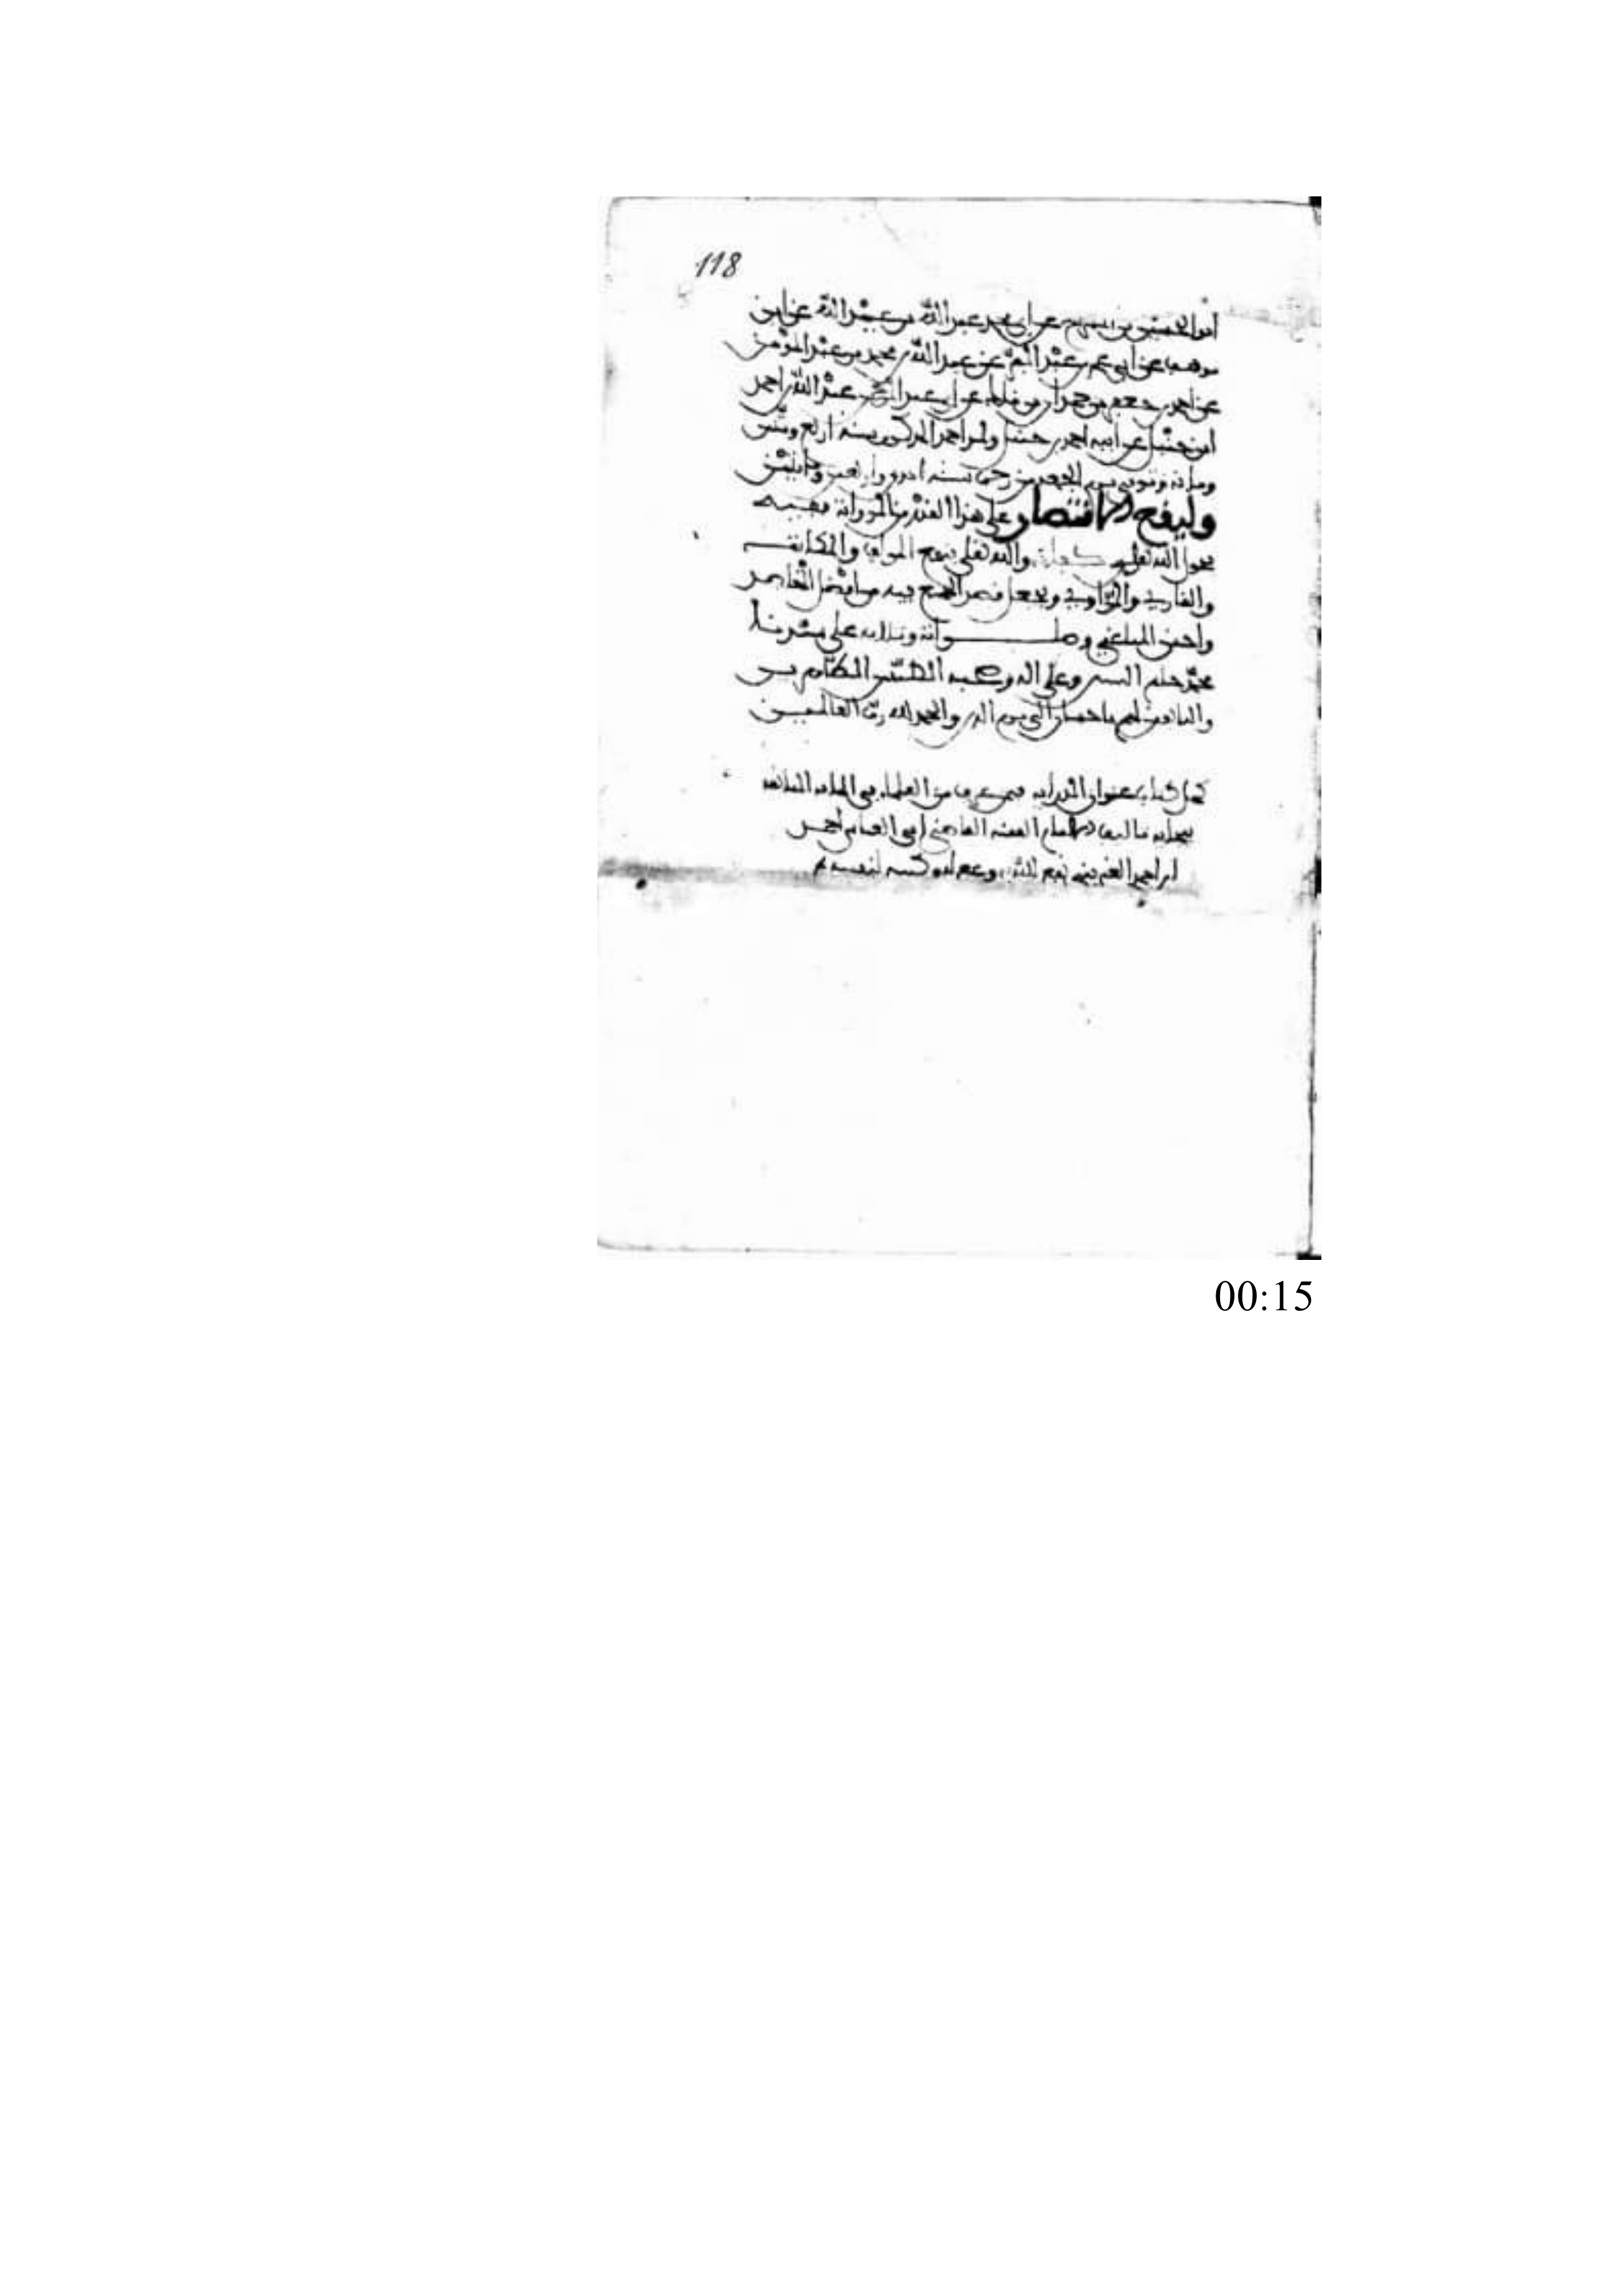 118
ابو الحسين بن عن ابي محمد عبد الله بن عبيد الله عن ابن
موهب عن ابي عمر بن عبد البر عن عبد الله بن محمد بن عبد المومن
عن احمد بن جعفر بن حمدان بن مالك عن ابي عبد الرحمن عبد الله بن احمد
ابن حنبل عن ابيه احمد بن حنبل ولد احمد المذكور سنة اربع وستين
وماية وتوفي يوم الجمعة من رجب سنة احدى واربعين ومايتين
وليقع الاقتصار على هذا القدر من الرواية ففيه
بحول الله تعلى كفاية والله تعلى ينفع المولف والكاتب
والقاري والراوي ويجعل قصد الجميع فيه من افضل المقاصد
واحسن المساعي وصلواته وسلامه على سيدنا
محمد خاتم النبيين وعلى اله وصحبه الطيبين الطاهرين
والتابعين لهم باحسان الى يوم الدين والحمد لله رب العالمين
كمل كتاب عنوان الدراية فيمن عرف من العلماء في الماية السابعة
ببجاية تاليف الامام الفقيه القاضي ابي العباس احمد
لنفسه
00:15